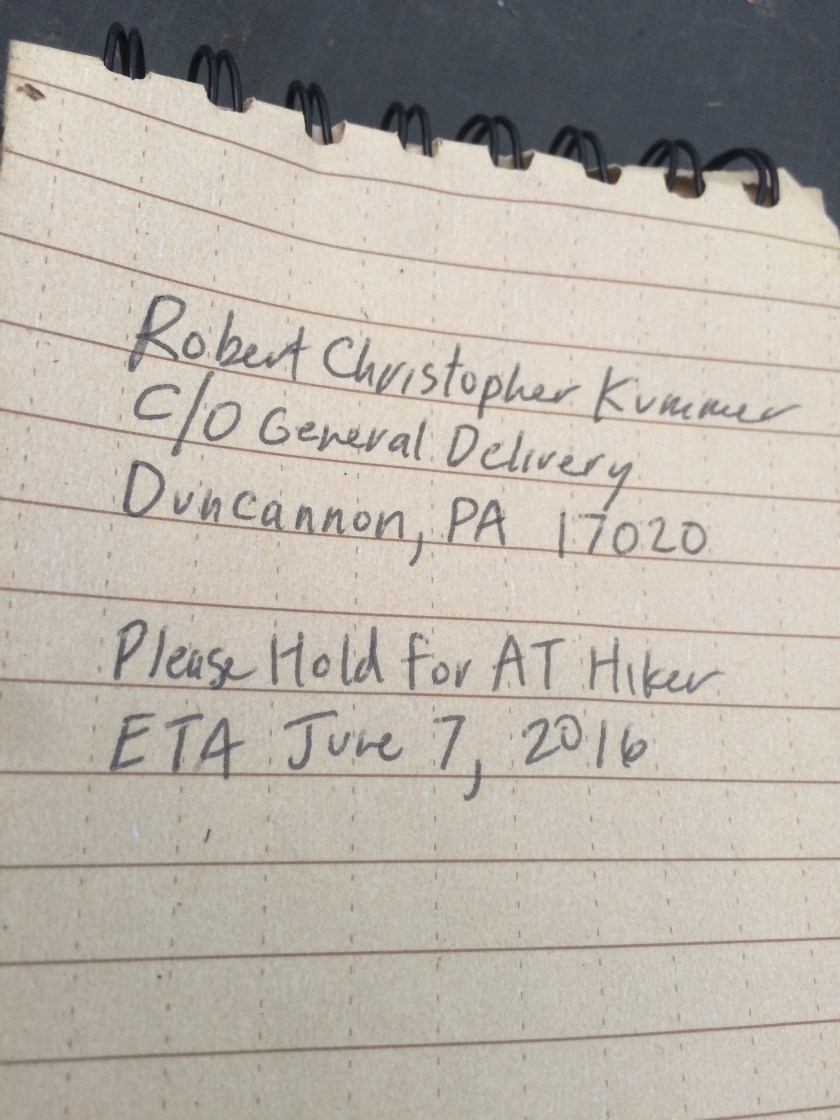 Robert Christopher Kummer
C/O General Delivery
Duncannon, PA 17020
Please Hold for AT Hiker
ETA June 7, 2016